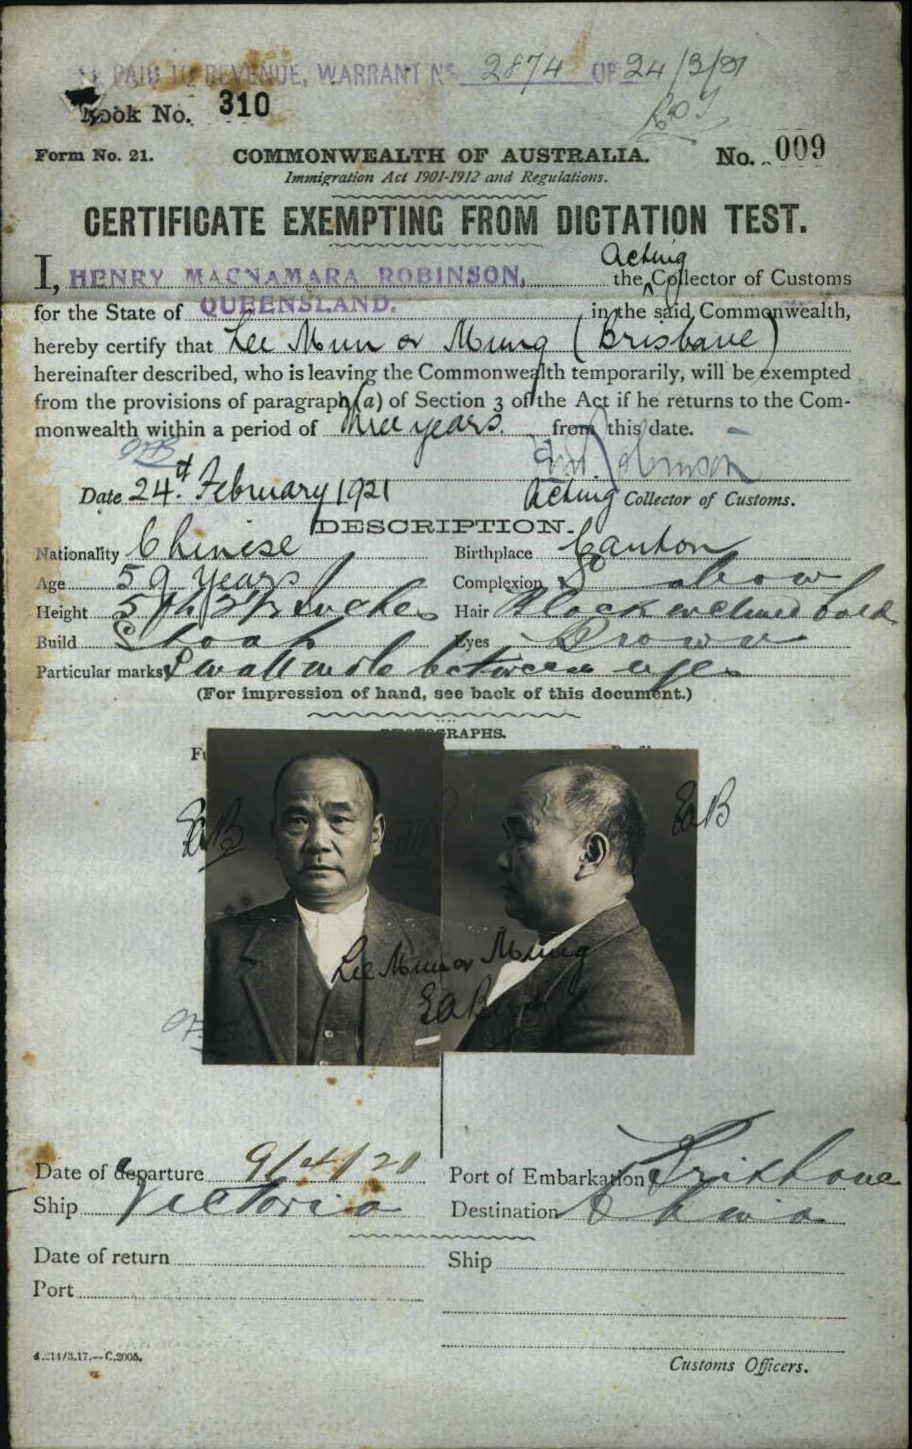 PAID TO REVENUE, WARRANT No. 2874 OF 24/3/21
Book No. 310
Form No. 21.
COMMONWEALTH OF AUSTRALIA.
No. 009
Immigration Act 1901-1912 and Regulations.
CERTIFICATE EXEMPTING FROM DICTATION TEST.
Acting
I, HENRY MACNAMARA ROBINSON, the Collector of Customs
for the State of QUEENSLAND. in the said Commonwealth,
hereby certify that Lee Mun or Mung (Brisbane)
hereinafter described, who is leaving the Commonwealth temporarily, will be exempted
from the provisions of paragraph (a) of Section 3 of the Act if he returns to the Com-
monwealth within a period of three years. from this date.
Robinson
Date 24th February 1921 Acting Collector of Customs.
DESCRIPTION.
Nationality Chinese Birthplace Canton
Age 59 years Complexion
Height 5 ft Inches Hair Black inclined bald
Build Stout Eyes Brown
Particular marks Small mole between eyes
(For impression of hand, see back of this document.)
EAB
EAB
Lee Mun or Mung
Date of departure 9/4/21 Port of Embarkation Brisbane
Ship Victoria Destination China
Date of return Ship
Port
Customs Officers.